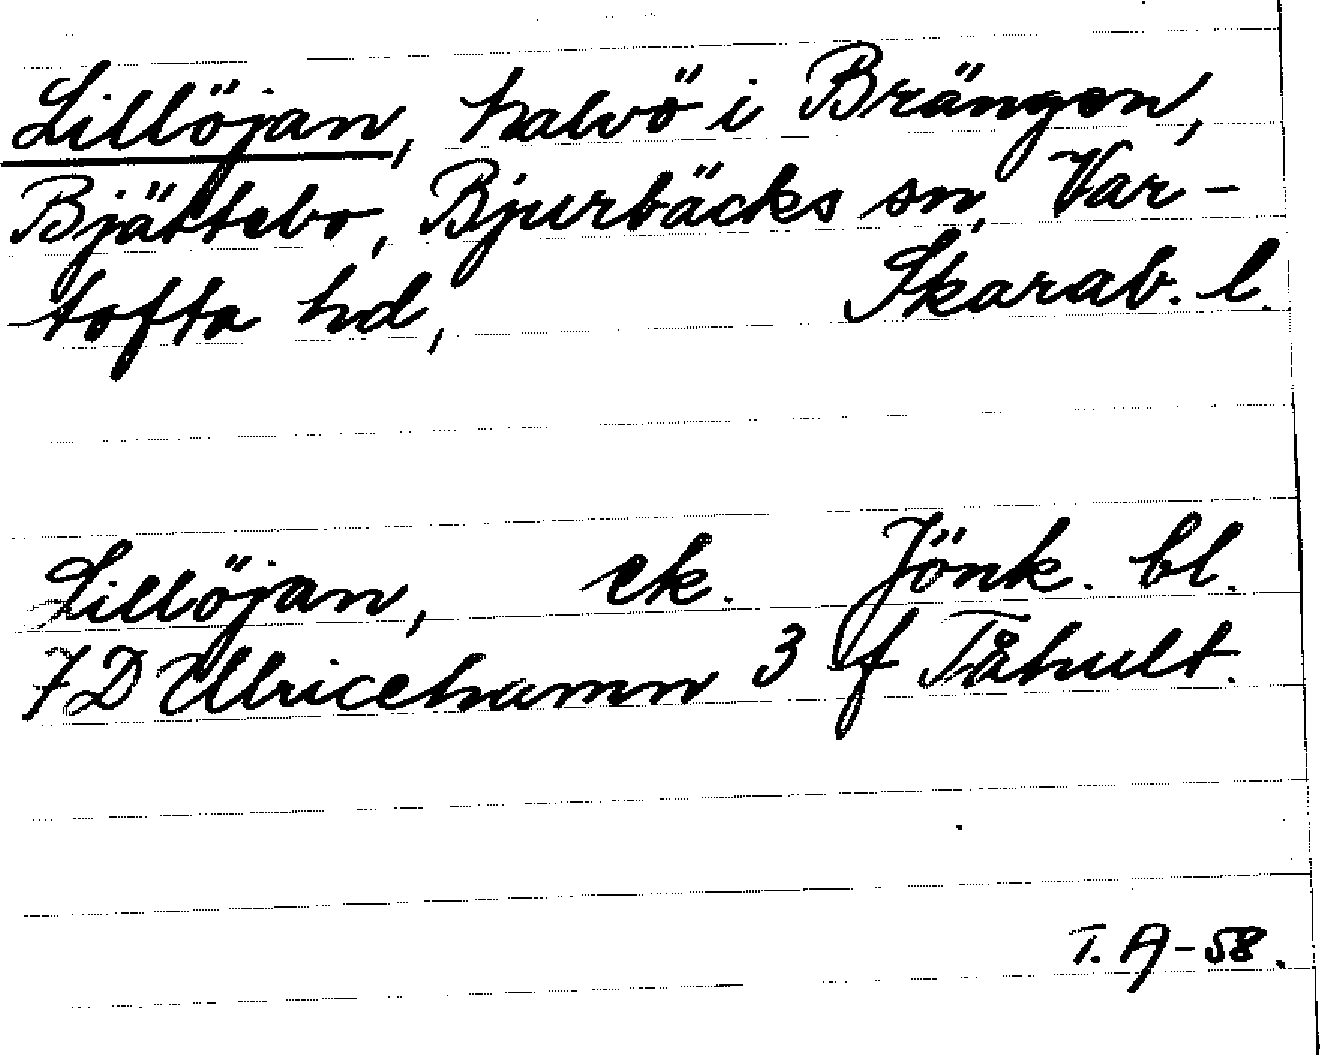 Lillöjan, halvö i Brängen,
Bjättebo, Bjurbäcks sn, Var-
tofta hd, Skarab. l.
Lillöjan, ek. Jönk. bl.
7D Ulricehamn 3 f Tåhult.
T. A-58.